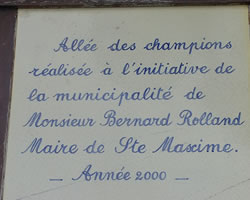 Allée des champions
réalisée à l'initiative de
la municipalité de
Monsieur Bernard Rolland
Maire de Ste Maxime.
— Année 2000 —